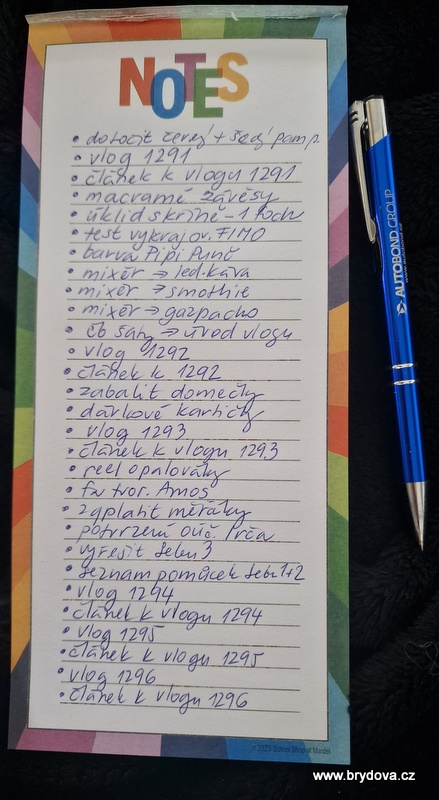 NOTES
• dotočit černý + šedý pamp.
• vlog 1291
• článek k vlogu 1291
• macramé závěsy
• úklid skříně - 1 poch
• test vykrajov. FIMO
• barva Pipi Punč
• mixér → led. káva
• mixér → smothie
• mixér → gazpacho
• čb šaty → úvod vlogu
• vlog 1292
• článek k 1292
• zabalit domečky
• dárkové kartičky
• vlog 1293
• článek k vlogu 1293
• reel opalováky
• fa tvor. Amos
• zaplatit měřáky
• potvrzení
• vyřešit
• seznam pomůcek 1+2
• vlog 1294
• článek k vlogu 1294
• vlog 1295
• článek k vlogu 1295
• vlog 1296
• článek k vlogu 1296
AUTOBOND GROUP
www.brydova.cz